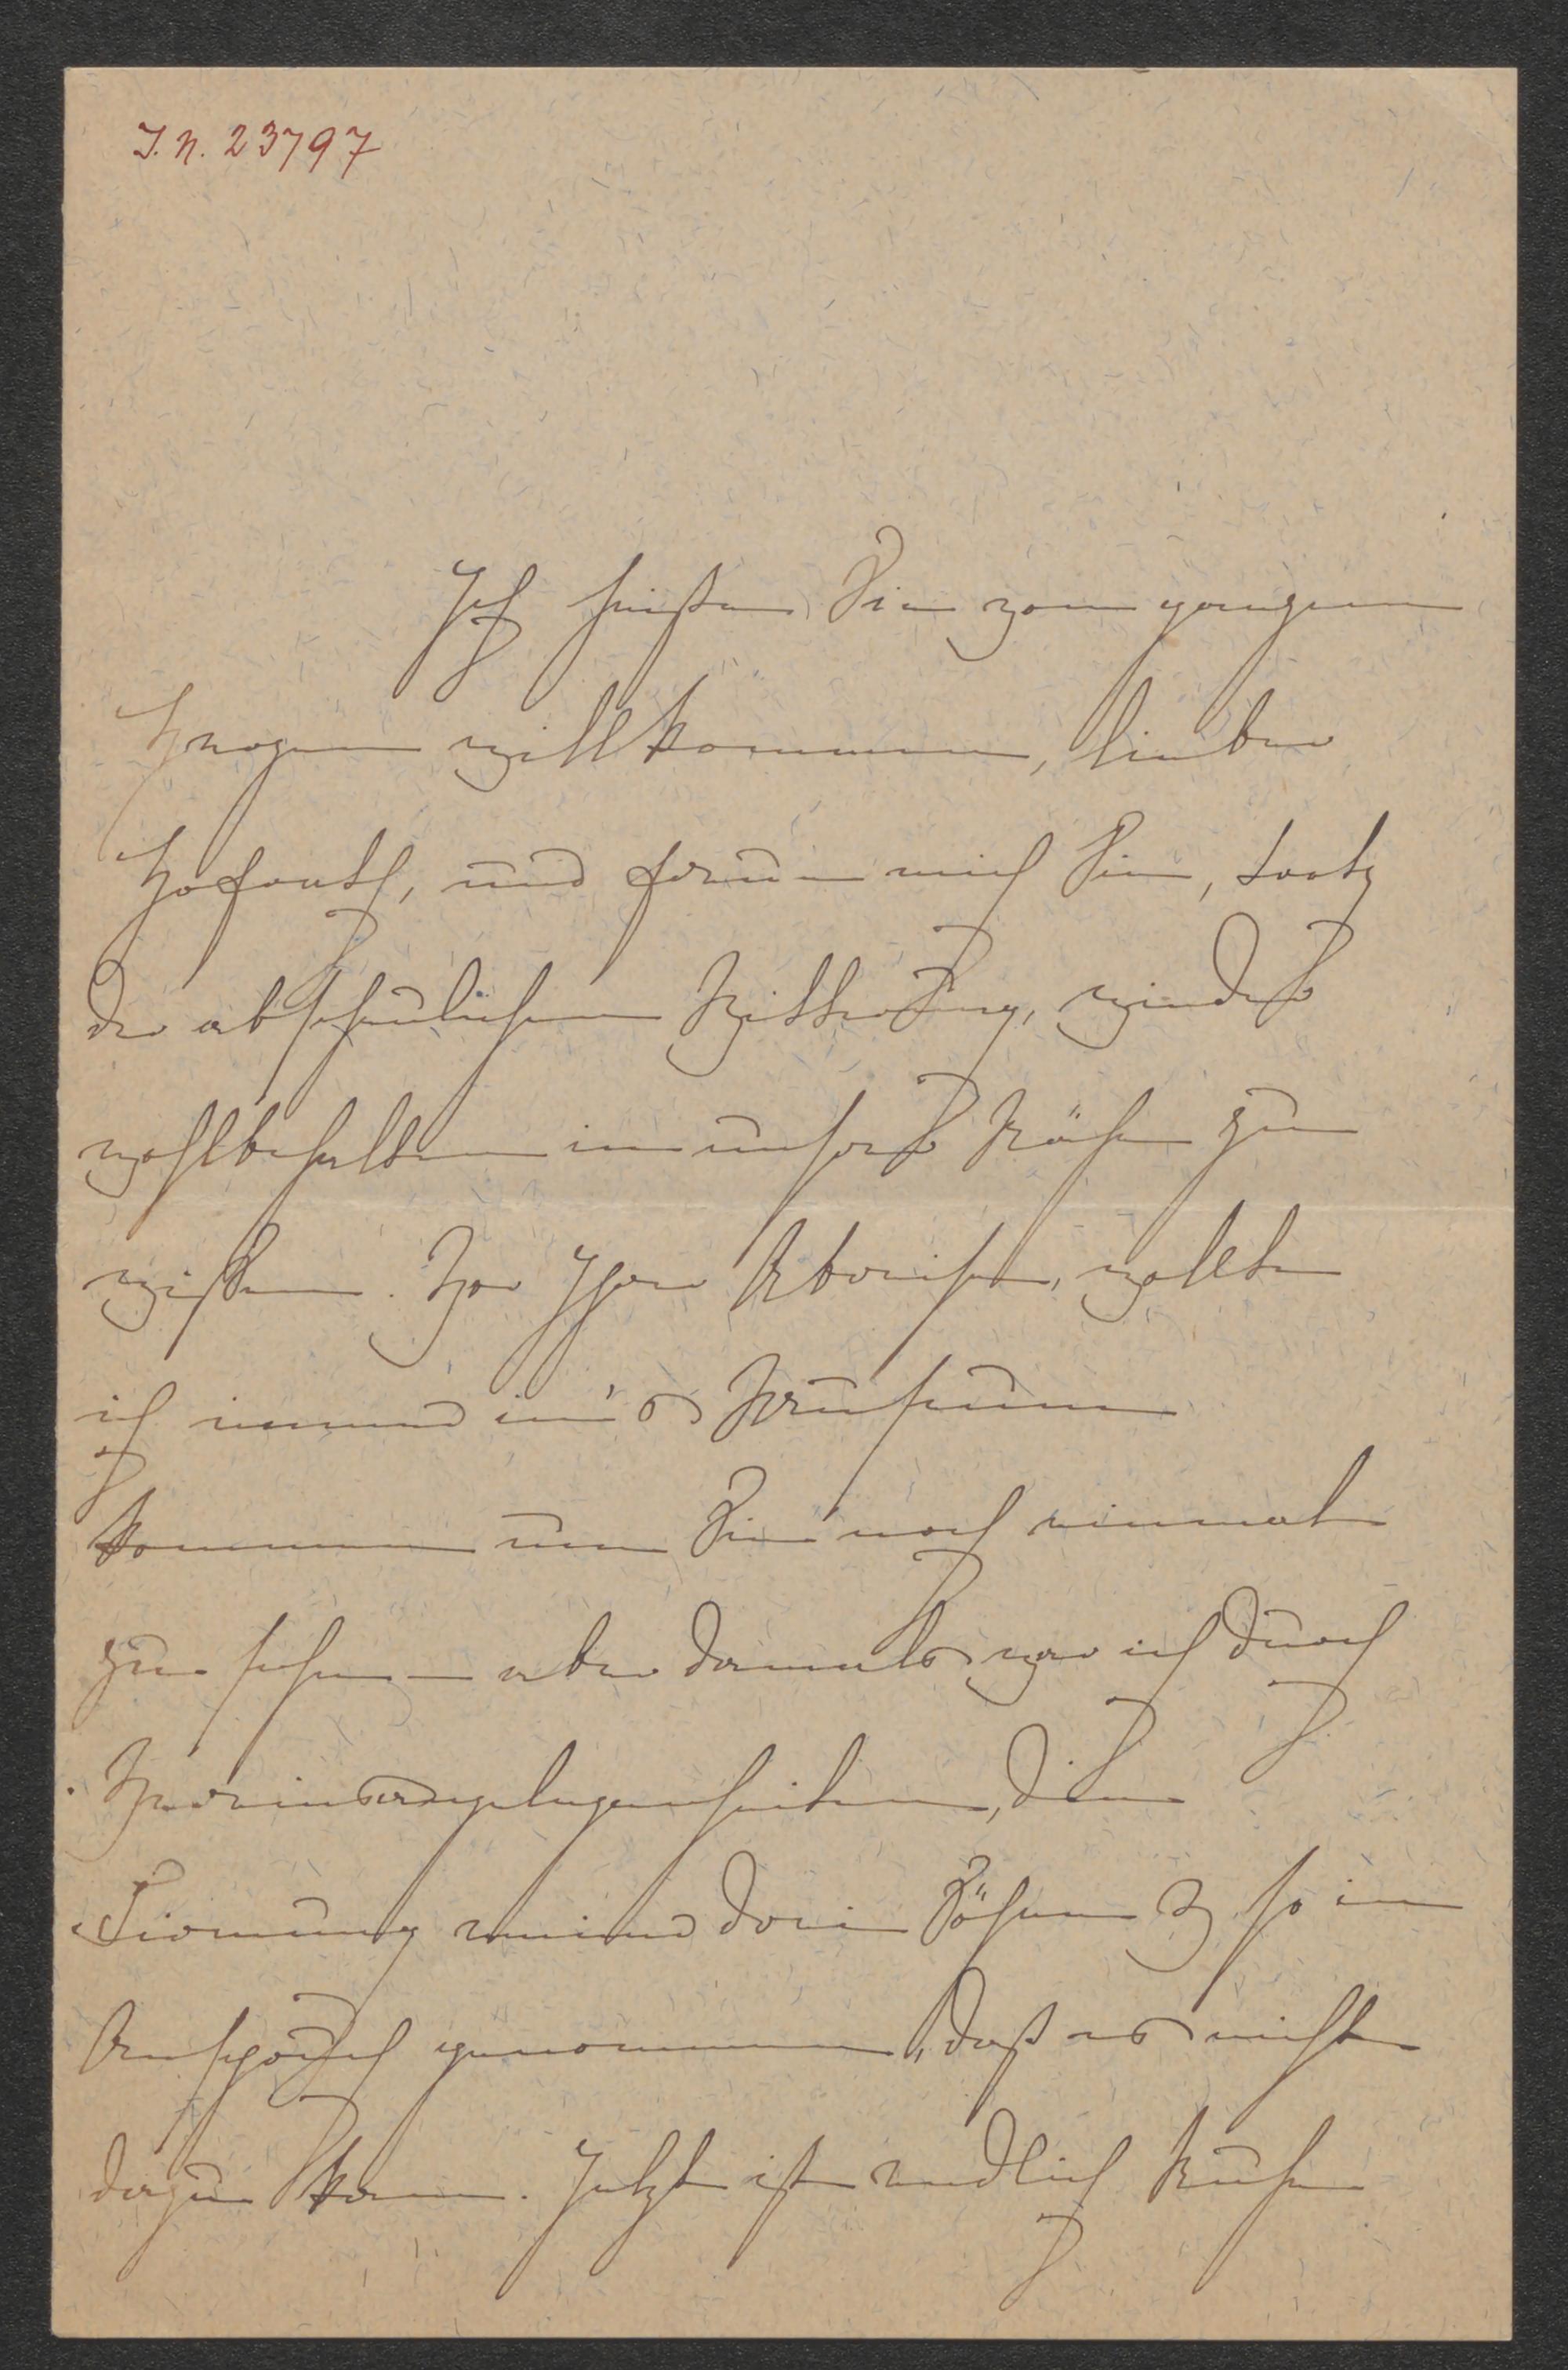 I.N. 23797
Ich heiße Sie von ganzem
Herzen willkommen, lieber
Hofrath, und freue mich Sie, trotz
der abscheulichen Witterung, wieder
wohlbehalten in unserer Nähe zu
wissen. Vor Ihrer Abreise, wollte
ich immer in's Museum
kommen um Sie noch einmal
zu sehen – aber damals war ich durch
Vereinsangelegenheiten, die
Firmung meiner drei Söhne so in
Anspruch genommen, daß es nicht
dazu kam. Jetzt ist endlich Ruhe